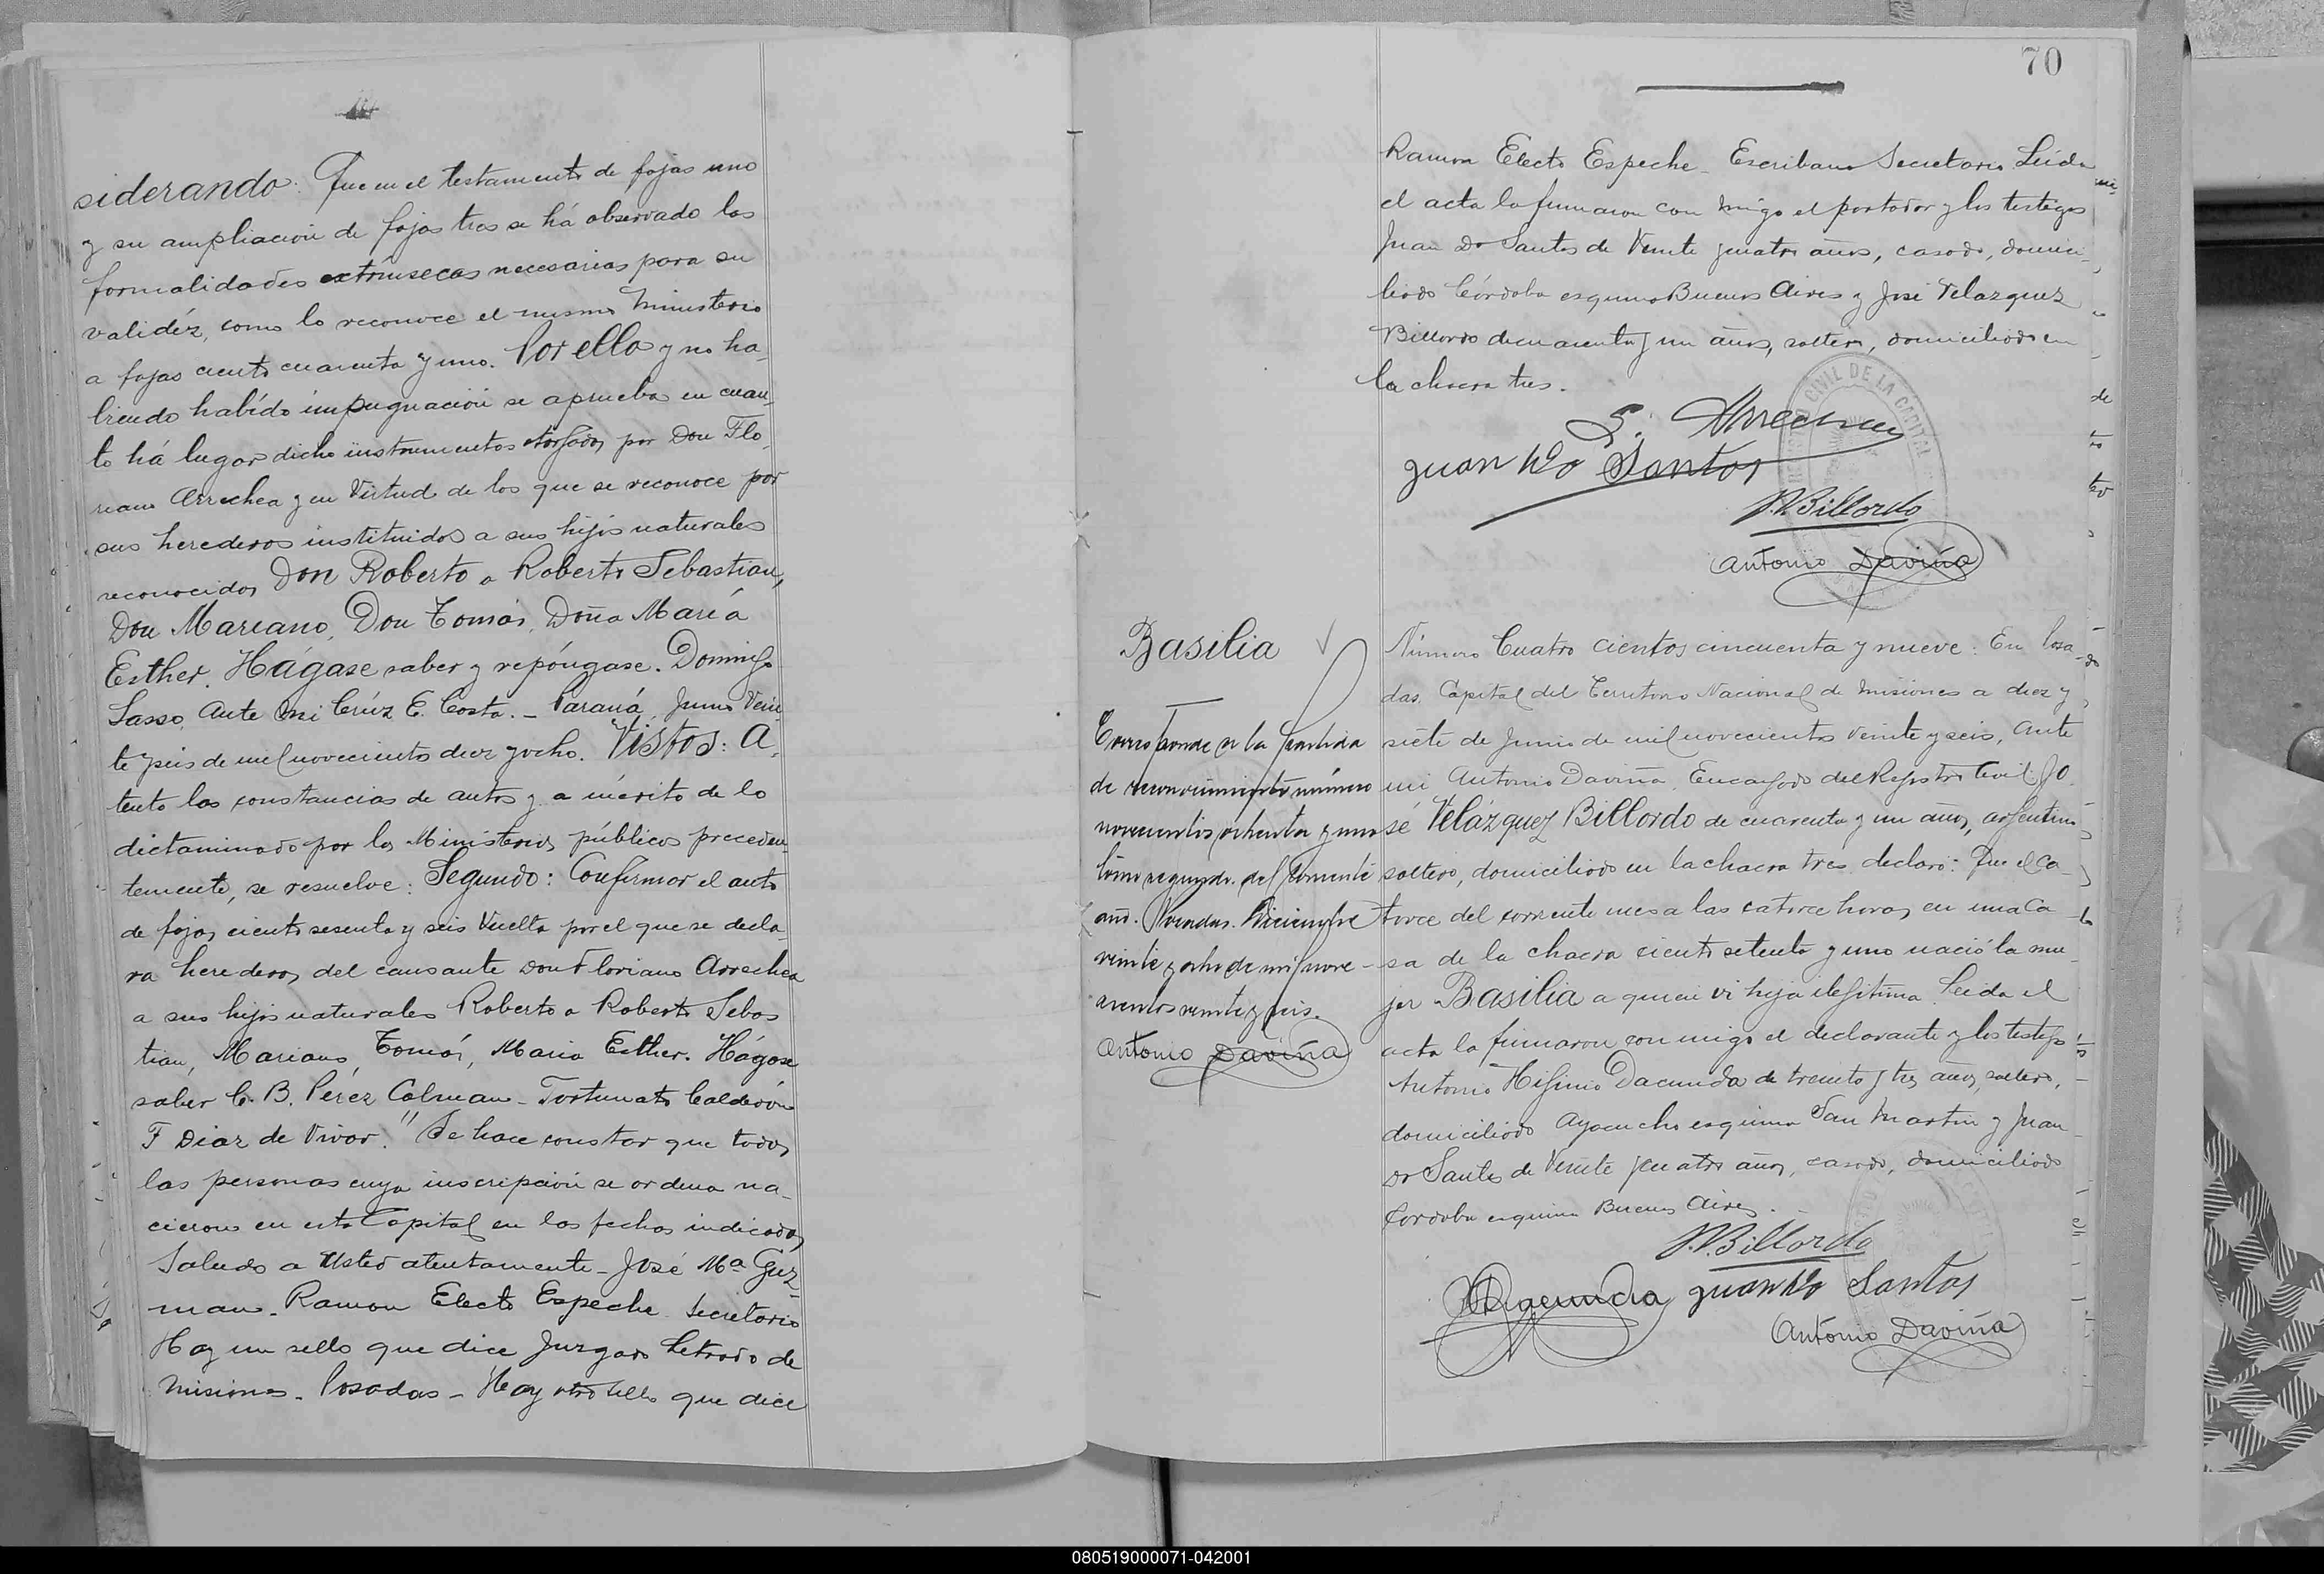 siderando: Que en el testamento de fojas uno
y su ampliación de fojas tres se há observado las
formalidades extrínsecas necesarias para su
validéz, como lo reconoce el mismo Ministerio
a fojas ciento cuarenta y uno. Por ello y no ha-
biendo habído impugnación se aprueba en cuan-
to há lugar dicho instrumentos otorgados por Don Flo-
riano Arrechea y en virtud de los que se reconoce por
sus herederos instituidos a sus hijos naturales
reconocidos Don Roberto o Roberto Sebastian,
Don Mariano, Don Tomás, Doña María
Esther. Hágase saber y repóngase. Domingo
Sasso, Ante mi Crúz E. Costa. - Paraná, Junio Vein
te y seis de mil novecientos diez y ocho. Vistos: A
tento las constancias de autos y a mérito de lo
dictaminado por los Ministerios públicos preceden-
temente, se resuelve: Segundo: Confirmar el auto
de fojas ciento sesenta y seis vuelta por el que se decla-
ra herederos del causante Don Floriano Arrechea
a sus hijos naturales Roberto o Roberto Sebas
tian, Mariano, Tomás, Maria Esther. Hágase
saber C. B. Pérez Colman - Fortunato Calderón
F Diaz de Vivar." Se hace constar que todas
las personas cuya inscripción se ordena na-
cieron en esta Capital en las fechas indicadas
Saludo a Usted atentamente - José Mª Guz-
man - Ramon Electo Espeche Secretario
Hay un sello que dice Juzgado Letrado de
Misiones - Posadas - Hay otro sello que dice
70
Ramon Electo Espeche - Escribano Secretario. Leida
el acta la firmaron con migo el portador y los testigos
Juan Do Santos de Veinte y cuatro años, casado, domici-
liado Córdoba esquina Buenos Aires y José Velazquez
Billordo de cuarenta y un años, soltero, domiciliado en
la chacra tres.
Juan Do Santos
J.V.Billordo
Antonio Daviña
Basilia
Corresponde a la partida
de reconocimiento número
novecientos ochenta y uno
tomo segundo del corriente
año. Posadas. Diciembre
veinte y ocho de mil nove-
cientos veinte y seis.
Antonio Daviña
Número Cuatro cientos cincuenta y nueve: En Posa-
das, Capital del Territorio Nacional de Misiones a diez y
siete de Junio de mil novecientos veinte y seis, Ante
mi Antonio Daviña, Encargado del Registro Civil: Jo-
sé Velázquez Billordo de cuarenta y un años, argentino
soltero, domiciliado en la chacra tres declaró: Que el ca-
torce del corriente mes a las catorce horas en una Ca
sa de la chacra ciento setenta y uno nació la mu-
jer Basilia a quien vi hija ilegítima. Leida el
acta la firmaron con migo el declarante y los testigos
Antonio Higinio Dacunda de treinta y tres años, soltero,
domiciliado Ayacucho esquina San Martin y Juan
Do Santos de Veinte y cuatro años, casado, domiciliado
Cordoba esquina Buenos Aires.
J.V.Billordo
Juan Do Santos
Antonio Daviña
080519000071-042001